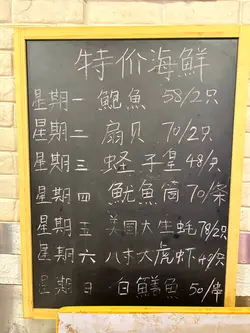 特价海鮮
星期一 鲍魚 58/2只
星期二 扇贝 70/2只
星期三 蛏子皇 48/只
星期四 魷魚筒 70/条
星期五 美国大生蚝 78/2只
星期六 八头大虎虾 49/只
星期日 白鱔魚 50/串